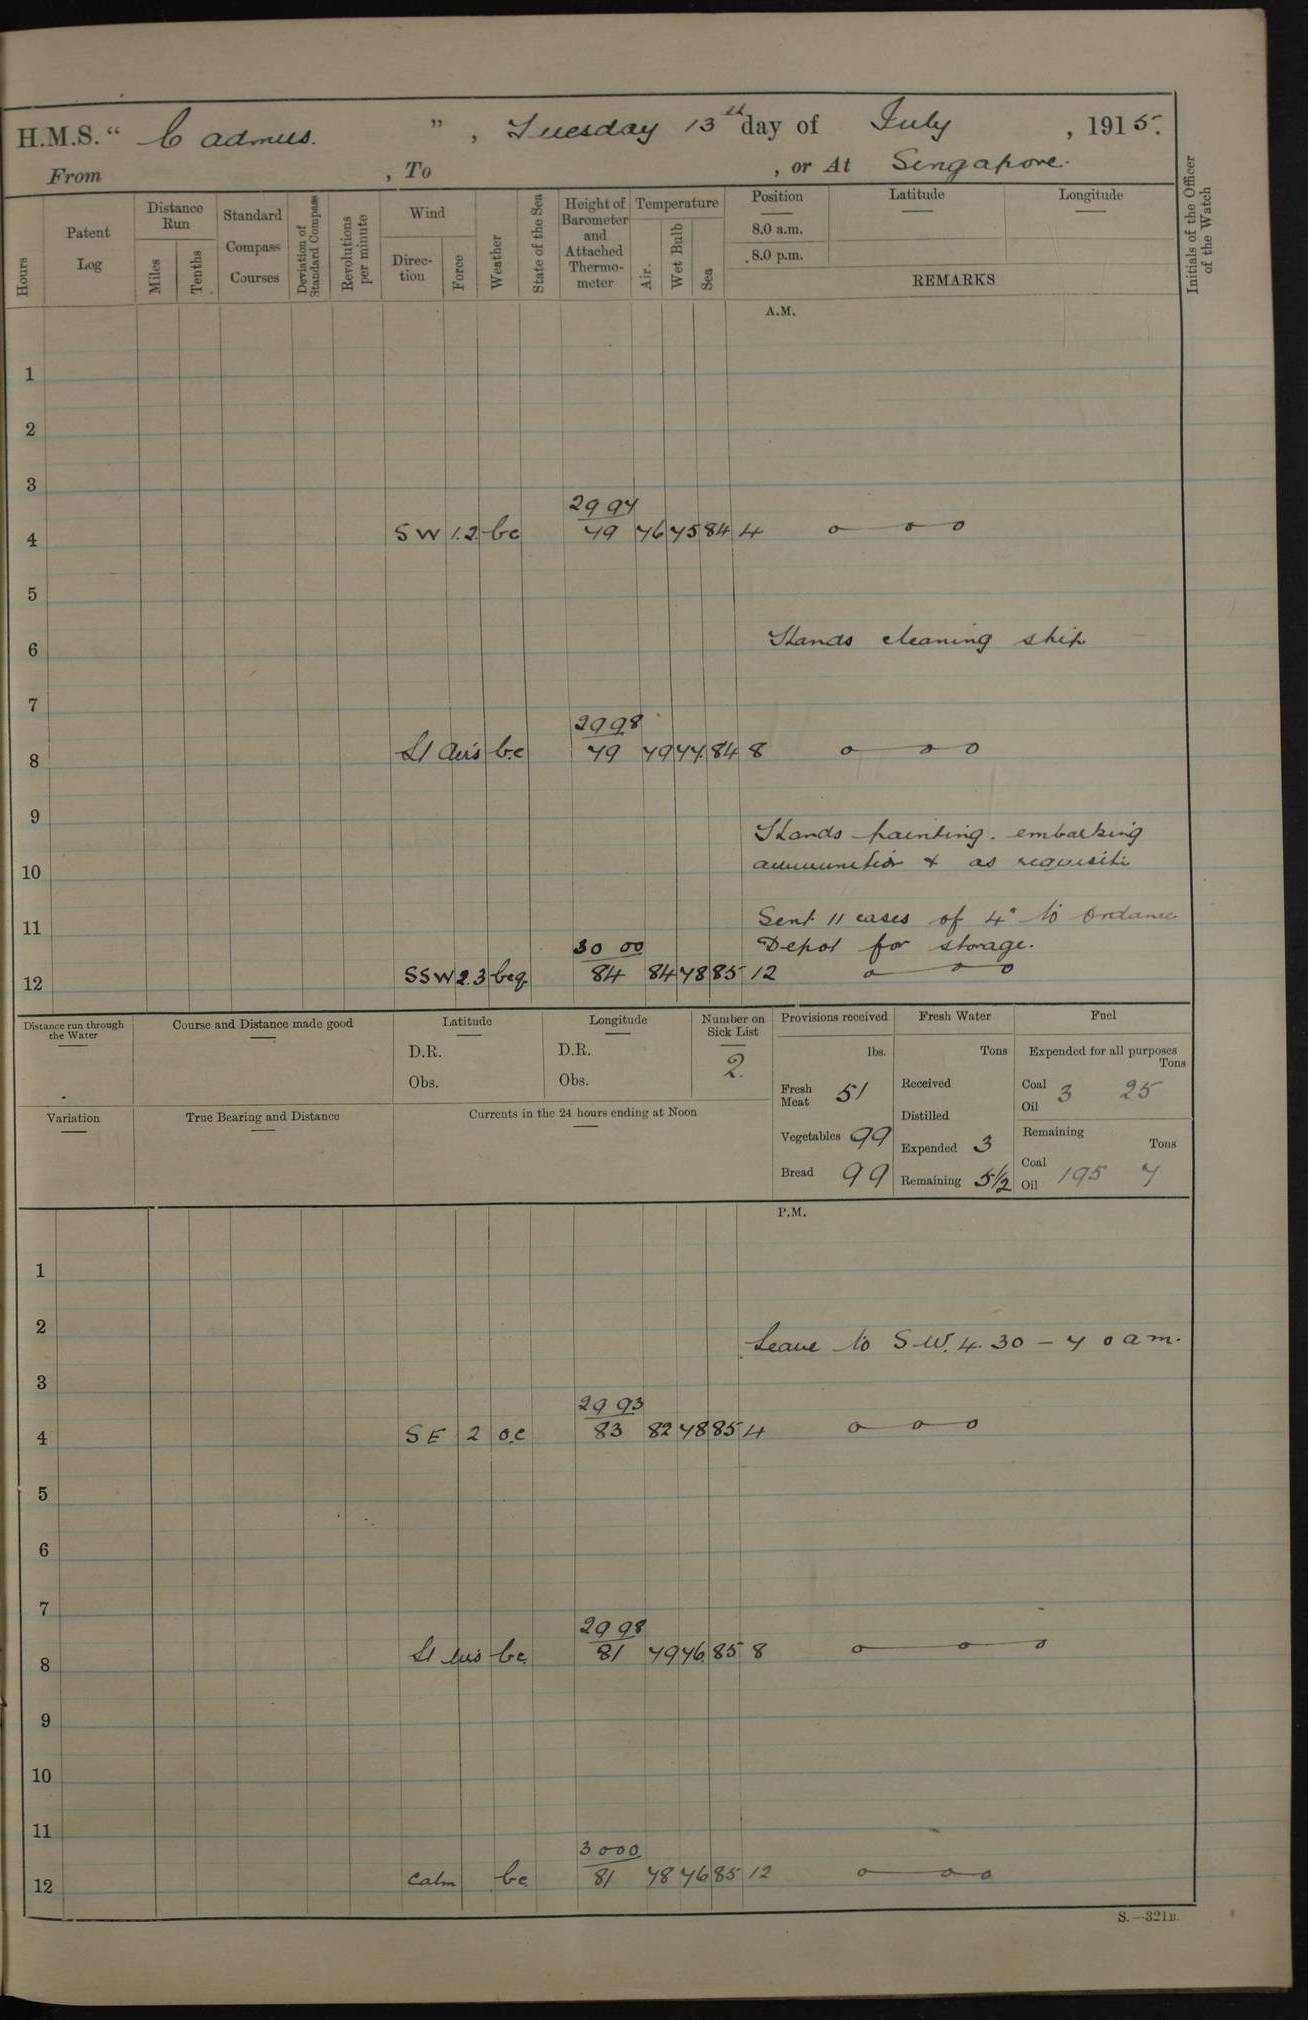 H.M.S. “ Cadmus. ” , Tuesday 13th day of July , 1915.
From , To , or At Singapore.
Hours
Patent Log
Distance Run
Miles
Tenths
Standard Compass Courses
Deviation of Standard Compass
Revolutions per minute
Wind
Direction
Force
Weather
State of the Sea
Height of Barometer and Attached Thermometer
Temperature
Air.
Wet Bulb
Sea
Position
8.0 a.m.
8.0 p.m.
Latitude
Longitude
REMARKS
Initials of the Officer of the Watch
A.M.
1
2
3
29 94
4 SW 1.2 bc 79 76 75 84 4
5
6 Hands cleaning ship
7
29 98
8 Lt Airs b.c 79 79 77 84 8
9 Hands painting. embarking
10 ammunition & as requisite
11 Sent 11 cases of 4" to Ordance
30 00 Depot for storage.
12 SSW 2.3 bcq 84 84 78 85 12
Distance run through the Water
Course and Distance made good
Latitude
D.R.
Obs.
Longitude
D.R.
Obs.
Number on Sick List
2.
Provisions received
lbs.
Fresh Meat 51
Vegetables 99
Bread 99
Fresh Water
Tons
Received
Distilled
Expended 3
Remaining 5½
Fuel
Expended for all purposes
Tons
Coal
Oil 3 25
Remaining
Tons
Coal
Oil 195 7
Variation
True Bearing and Distance
Currents in the 24 hours ending at Noon
P.M.
1
2 Leave to S.W. 4.30 – 7 0 am.
3
29 93
4 SE 2 o.c 83 82 78 85 4
5
6
7
29 98
8 Lt Airs bc. 81 79 76 85 8
9
10
11
30 00
12 Calm bc 81 78 76 85 12
S.—321B.